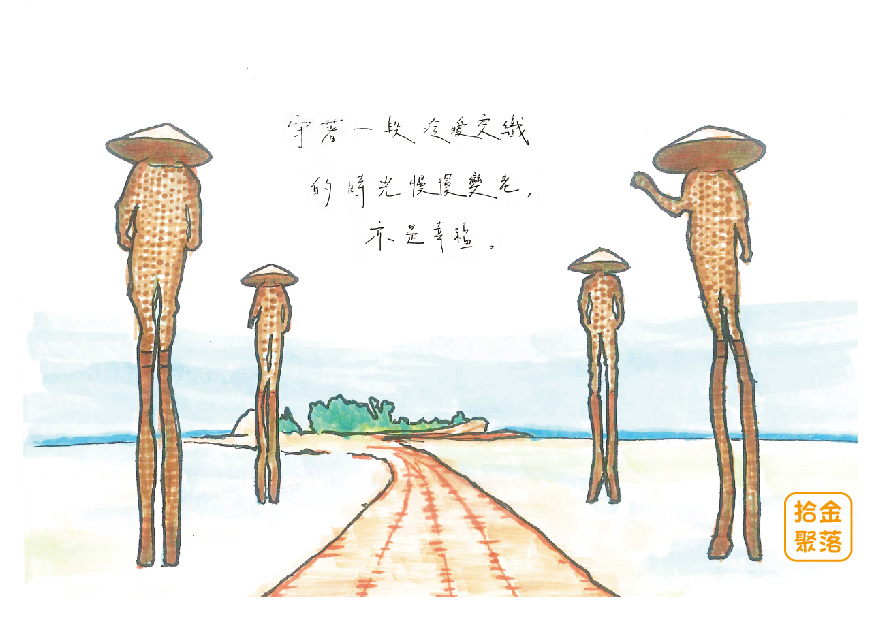 守著一段冷暖交織
的時光慢慢變老,
亦是幸福。
拾金
聚落